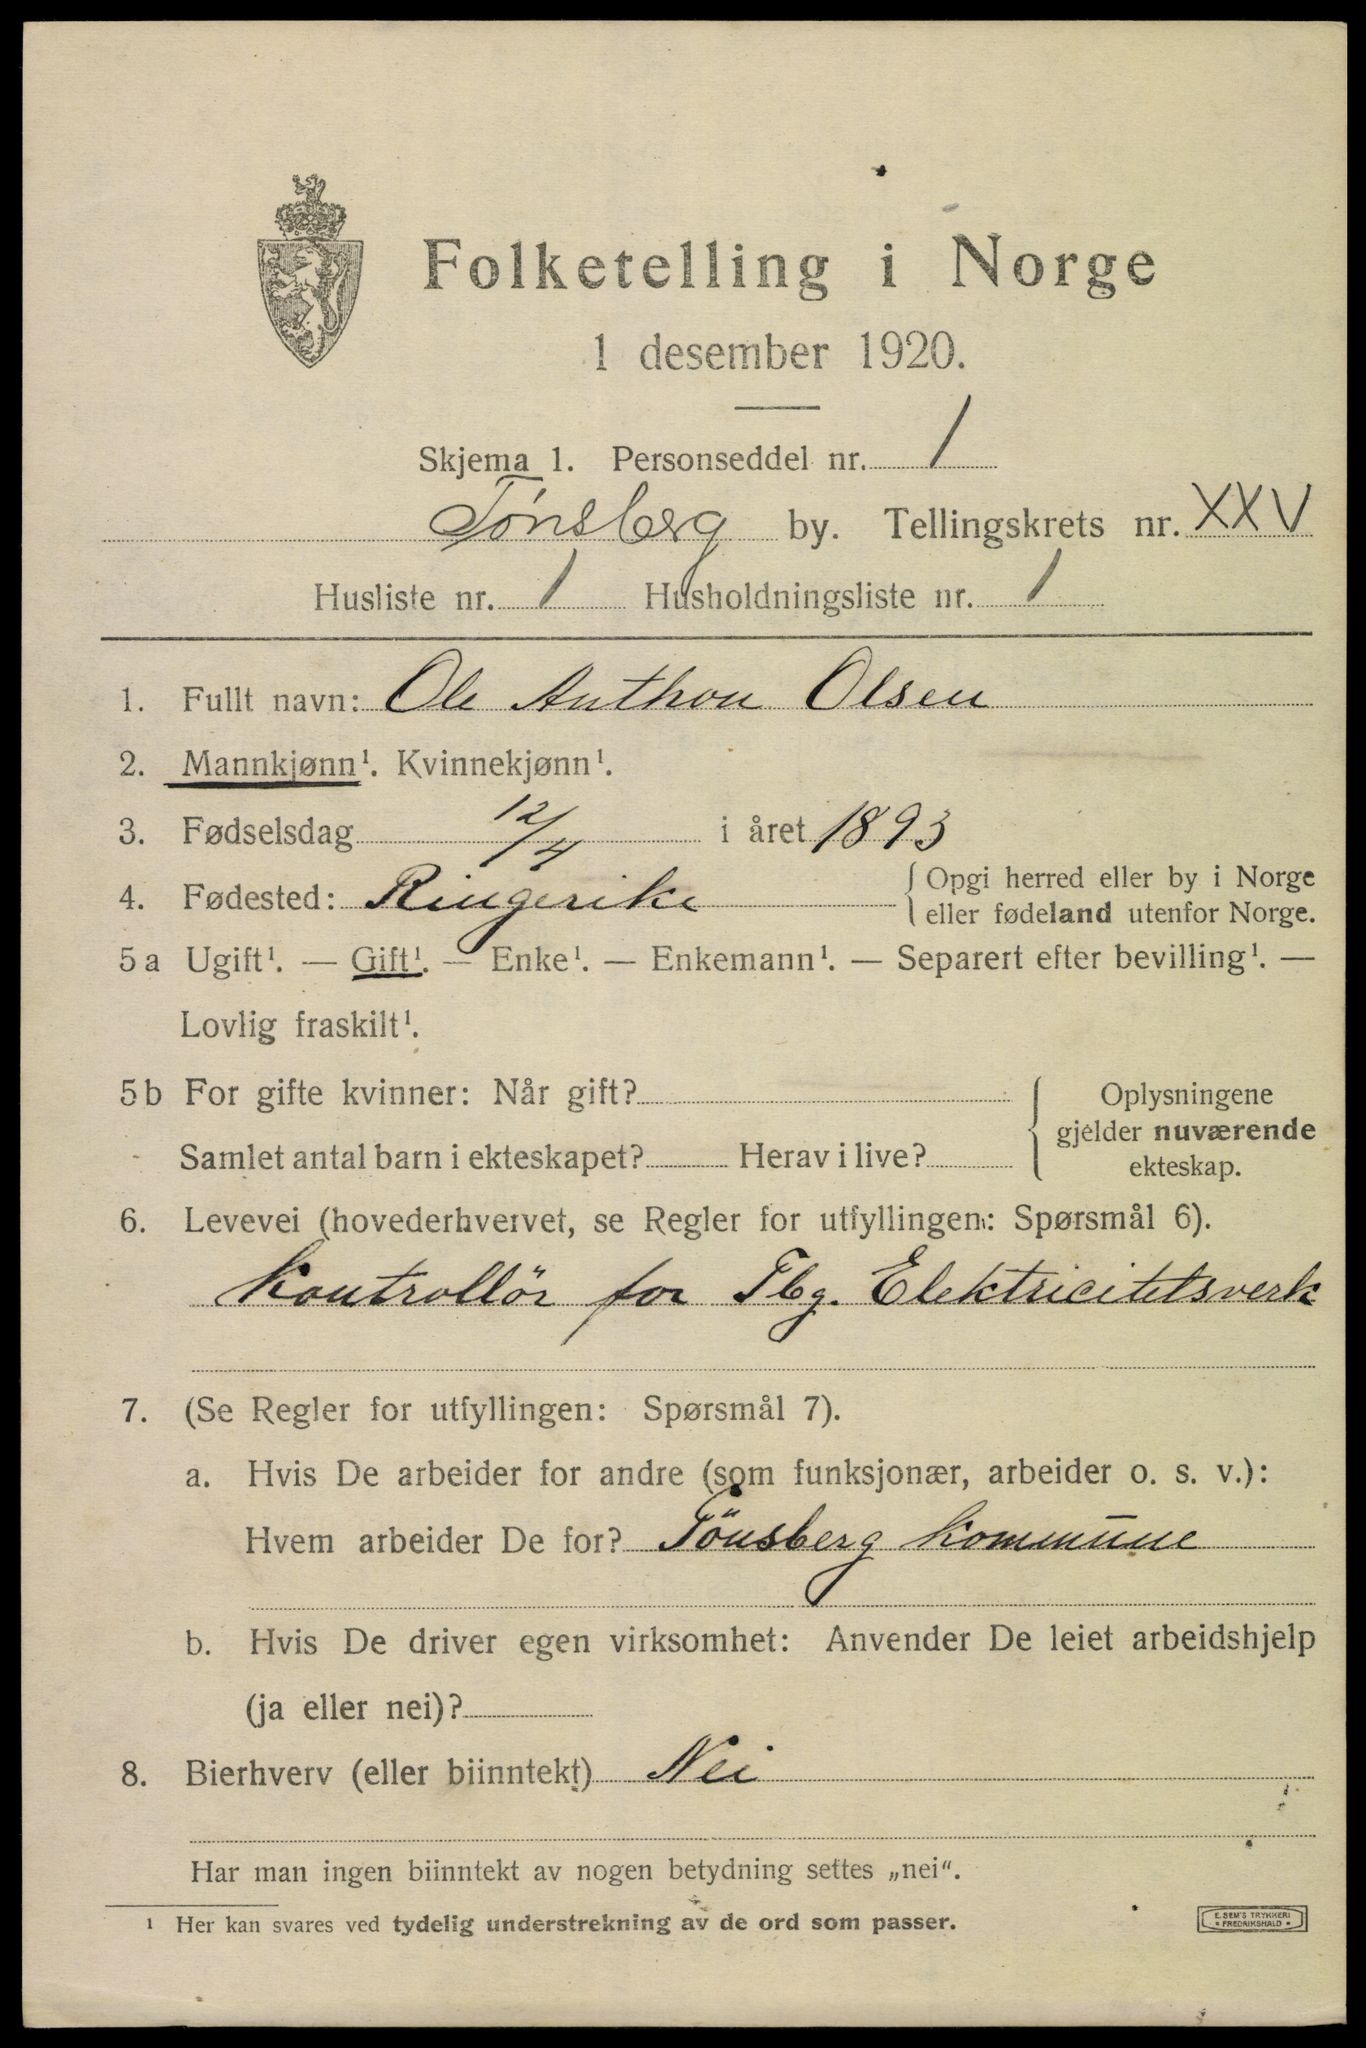 Folketelling i Norge
1 desember 1920.
Skjema 1. Personseddel nr. 1
Tønsberg by. Tellingskrets nr. XXV
Husliste nr. 1 Husholdningsliste nr. 1
1. Fullt navn: Ole Anthon Olsen
2. Mannkjønn¹. Kvinnekjønn¹.
3. Fødselsdag 12/4 i året 1893
4. Fødested: Ringerike {Opgi herred eller by i Norge
eller fødeland utenfor Norge.
5 a Ugift¹. — Gift¹. — Enke¹. — Enkemann¹. — Separert efter bevilling¹. —
Lovlig fraskilt¹.
5 b For gifte kvinner: Når gift? Oplysningene
gjelder nuværende
Samlet antal barn i ekteskapet? Herav i live? ekteskap.
6. Levevei (hovederhvervet, se Regler for utfyllingen: Spørsmål 6).
Kontrollör for Tbg. Elektricitetsverk
7. (Se Regler for utfyllingen: Spørsmål 7).
a. Hvis De arbeider for andre (som funksjonær, arbeider o. s. v.):
Hvem arbeider De for? Tönsberg Kommune
b. Hvis De driver egen virksomhet: Anvender De leiet arbeidshjelp
(ja eller nei)?
8. Bierhverv (eller biinntekt) Nei
Har man ingen biinntekt av nogen betydning settes „nei“.
¹ Her kan svares ved tydelig understrekning av de ord som passer.
E. SEM'S TRYKKERI
FREDRIKSHALD